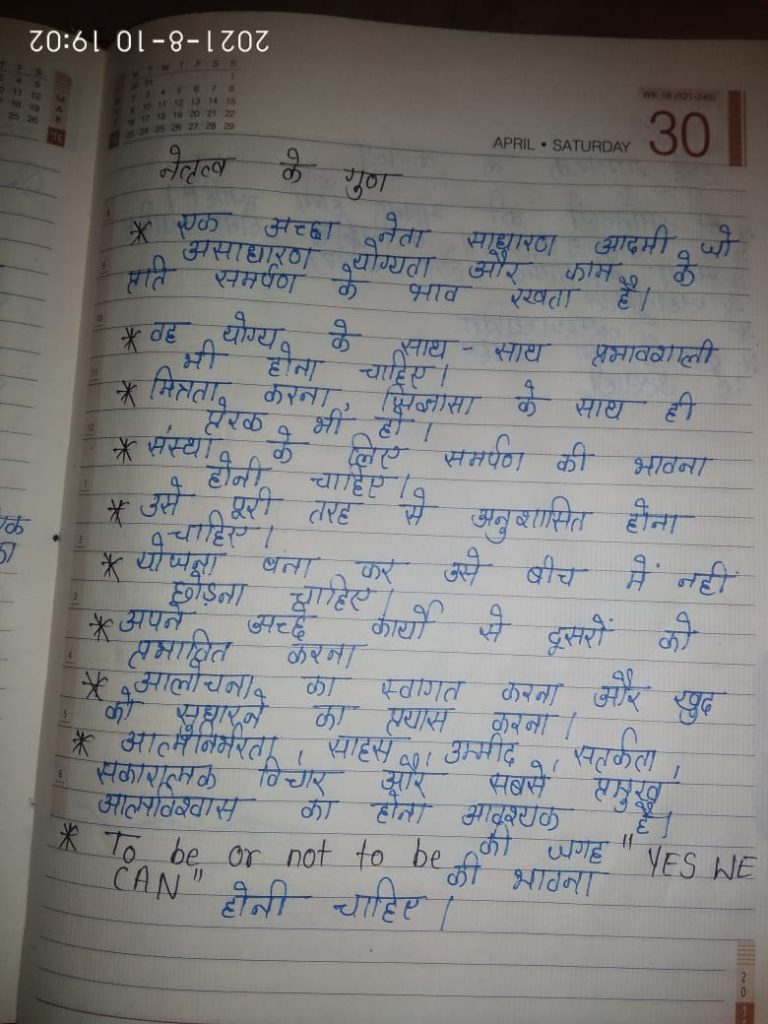 2021-8-10 19:02
WK 18 (121-245)
APRIL • SATURDAY 30
नेतृत्व के गुण
* एक अच्छा नेता साधारण आदमी जो
असाधारण योग्यता और काम के
प्रति समर्पण के भाव रखता है।
* वह योग्य के साथ - साथ प्रभावशाली
भी होना चाहिए।
* मित्रता करना, जिज्ञासा के साथ ही
प्रेरक भी हो।
* संस्था के लिए समर्पण की भावना
होनी चाहिए।
* उसे पूरी तरह से अनुशासित होना
चाहिए।
* योजना बना कर उसे बीच में नहीं
छोड़ना चाहिए।
* अपने अच्छे कार्यों से दूसरों को
प्रभावित करना
* आलोचना का स्वागत करना और खुद
को सुधारने का प्रयास करना।
* आत्मनिर्भरता, साहस, उम्मीद, सतर्कता,
सकारात्मक विचार और सबसे प्रमुख
आत्मविश्वास का होना आवश्यक है।
* To be or not to be की जगह "YES WE
CAN" की भावना
होनी चाहिए।